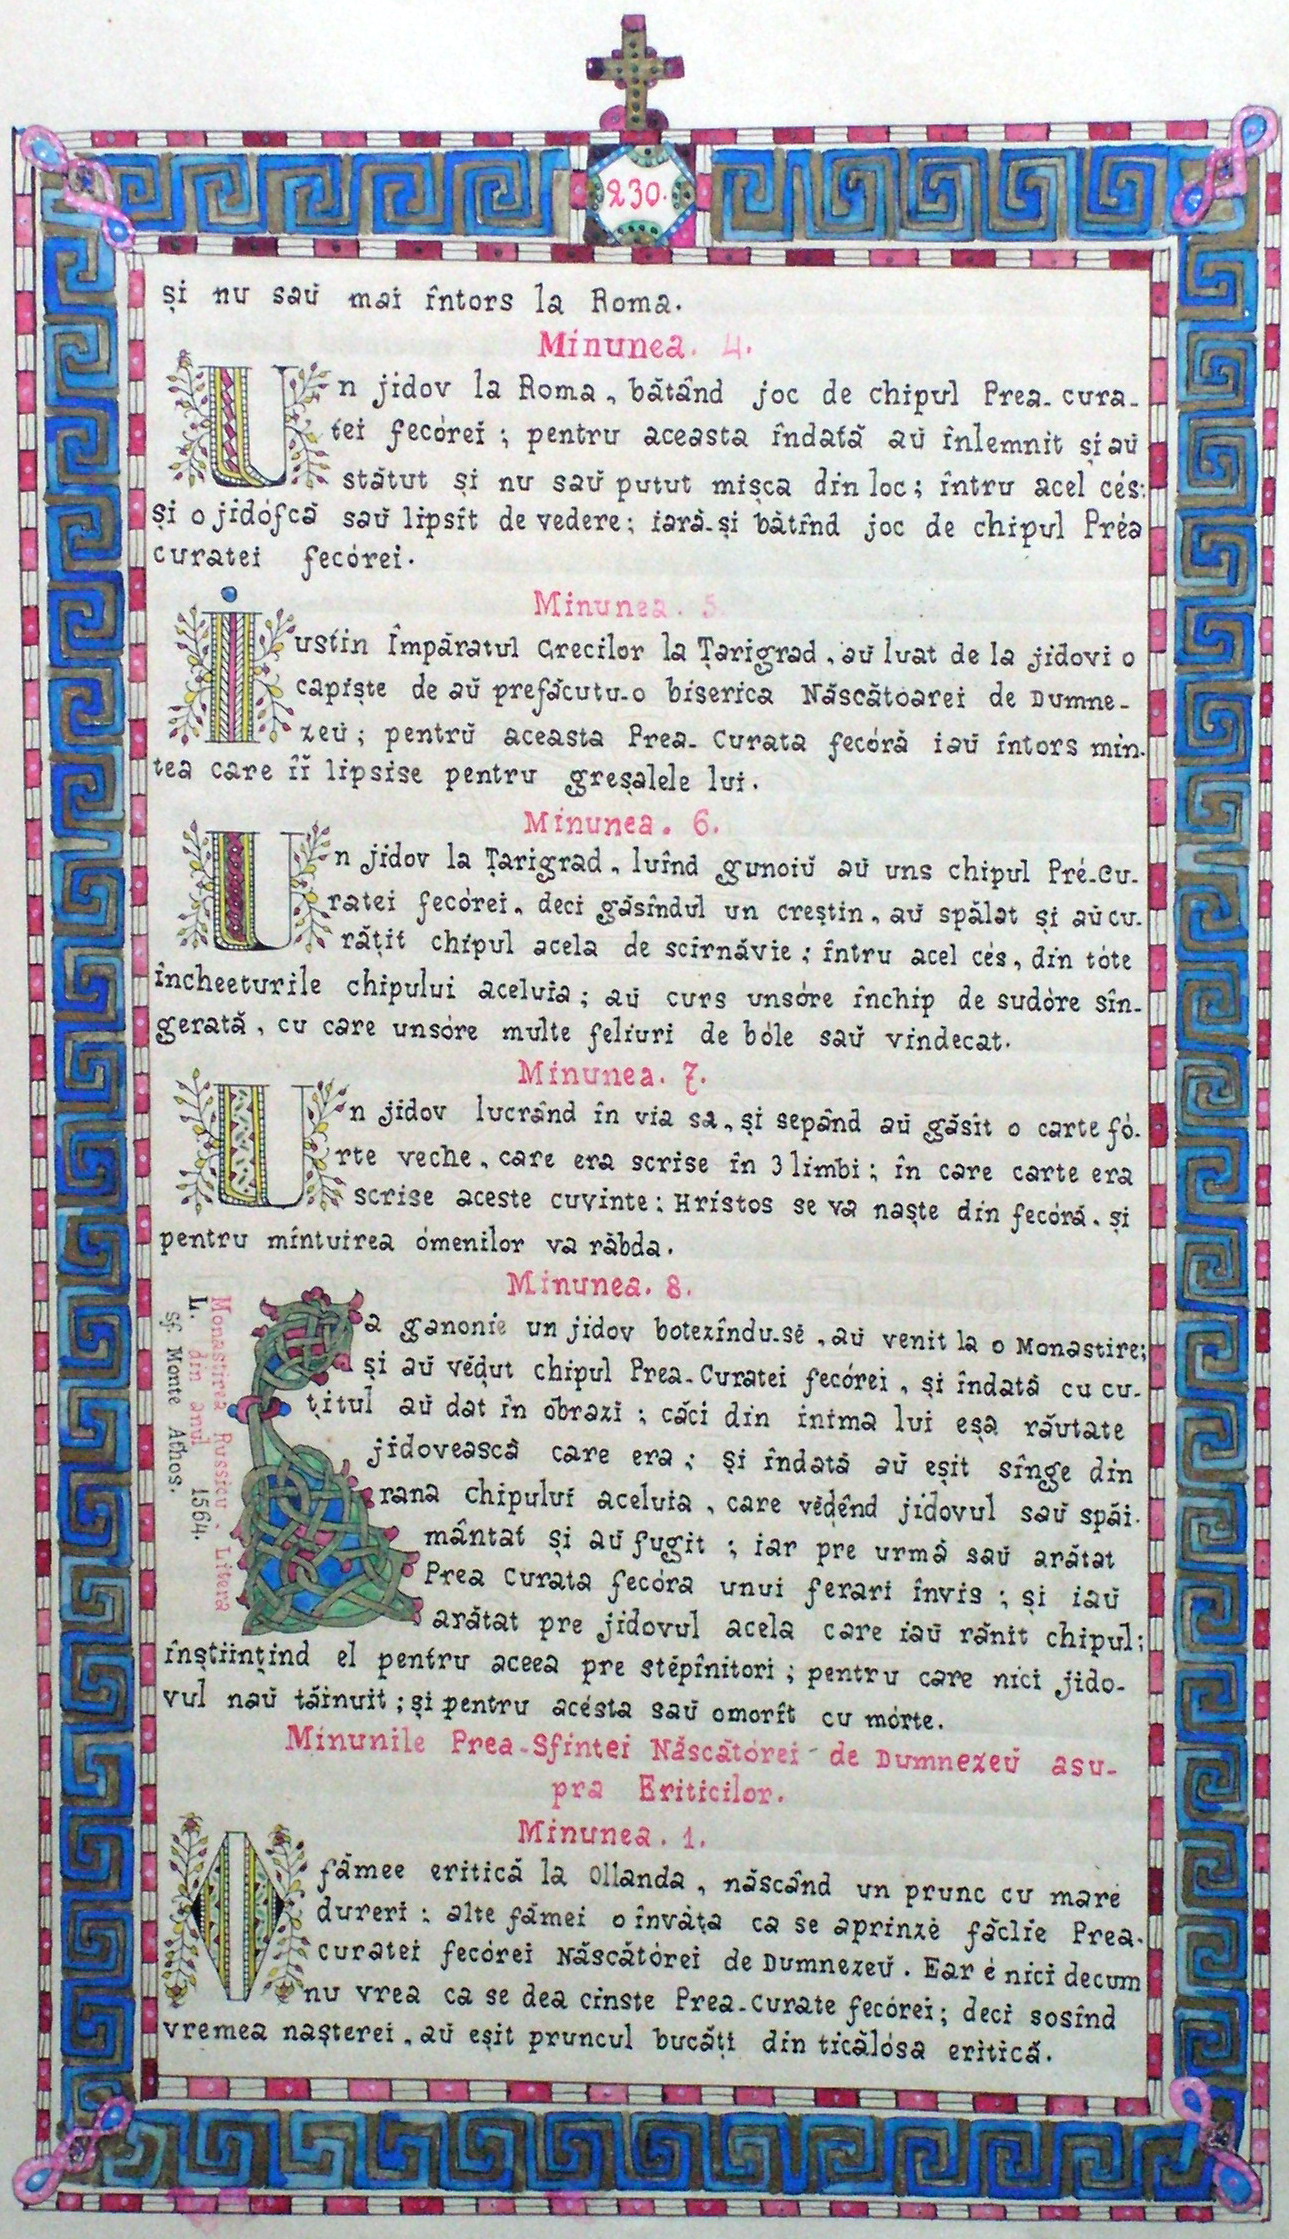 230.
și nu saŭ mai întors la Roma.
Minunea. 4.
Un jidov la Roma, bătând joc de chipul Prea-cura-
tei fecórei; pentru aceasta îndată aŭ înlemnit și aŭ
stătut și nu saŭ putut mișca din loc; întru acel cés:
și o jidófcă saŭ lipsit de vedere; iară-și bătînd joc de chipul Préa
curatei fecórei.
Minunea. 5
Iustin Împăratul Grecilor la Țarigrad, aŭ luat de la jidovi o
capiște de aŭ prefăcutu-o biserica Născătoarei de Dumne-
zeŭ; pentrŭ aceasta Prea-Curata fecóră iaŭ întors min-
tea care îĭ lipsise pentru greșalele lui.
Minunea. 6.
Un jidov la Țarigrad, luînd gunoiŭ aŭ uns chipul Pré-Cu-
ratei fecórei, deci găsîndul un creștin, aŭ spălat și aŭ cu-
rățit chipul acela de scîrnăvie; întru acel cés, din tóte
încheeturile chipului aceluia; aŭ curs unsóre închip de sudóre sîn-
gerată, cu care unsóre multe feliuri de bóle saŭ vindecat.
Minunea. 7.
Un jidov lucrând în via sa, și sepând aŭ găsit o carte fó-
rte veche, care era scrise în 3 limbi; în care carte era
scrise aceste cuvinte: Hristos se va naște din fecóră, și
pentru mîntuirea ómenilor va răbda.
Minunea. 8.
La ganonie un jidov botezîndu-sĕ, aŭ venit la o Monastire;
și aŭ vĕdut chipul Prea-Curatei fecórei, și îndată cu cu-
țitul aŭ dat în obrazi; căci din inima lui eșa răutate
jidovească care era; și îndată aŭ eșit sînge din
rana chipului aceluia, care vĕdênd jidovul saŭ spăi-
mântat și aŭ fugit; iar pre urmă saŭ arătat
Prea Curata fecóra unui ferari învis; și iaŭ
arătat pre jidovul acela care iaŭ rănit chipul;
înștiințind el pentru aceea pre stépînitori; pentru care nici jido-
vul naŭ tăinuit; și pentru acésta saŭ omorît cu mórte.
Monastirea Russicu Litera
L. din anul 1564.
sf. Monte Athos.
Minunile Prea-Sfintei Născătórei de Dumnezeŭ asu-
pra Eriticilor.
Minunea. 1.
O fămee eritică la Ollanda, născând un prunc cu mare
dureri; alte fămei o învăța ca se aprinzé făclie Prea-
curatei fecórei Născătórei de Dumnezeŭ. Ear é nici decum
nu vrea ca se dea cinste Prea-Curate fecórei; deci sosînd
vremea nașterei, aŭ eșit pruncul bucăți din ticălósa eritică.